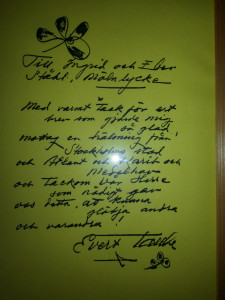 Till Ingrid och Ebor
Ståhl, Mölnlycke
Med varmt Tack för ert
brev som gjorde mig
så glad
mottag en hälsning från
Stockholms stad
och Atlant och
Medelhav
och Tackom Vår Herre
som nådigt gav
oss detta, att kunna
glädja andra
och varandra!
Evert Taube